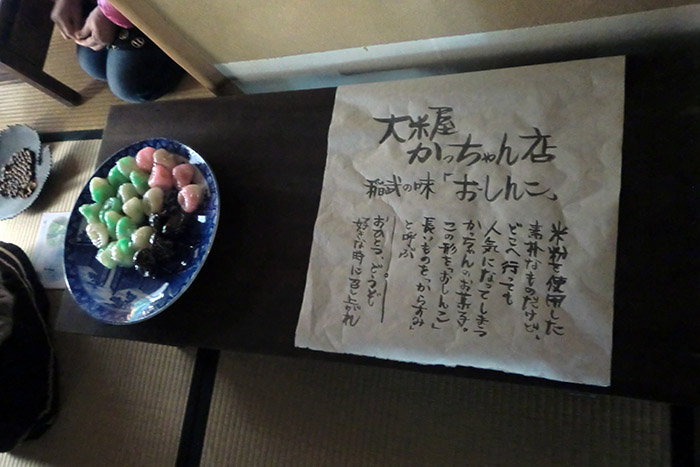 大米屋
かっちゃん店
稲武の味「おしんこ」
米粉を使用した
素朴なものだけど、
どこへ行っても
人気になってしまう
かっちゃんのお菓子。
この形を「おしんこ」
長いものを「からすみ」
と呼ぶ
おひとつ、どうぞ
好きな時に召し上がれ